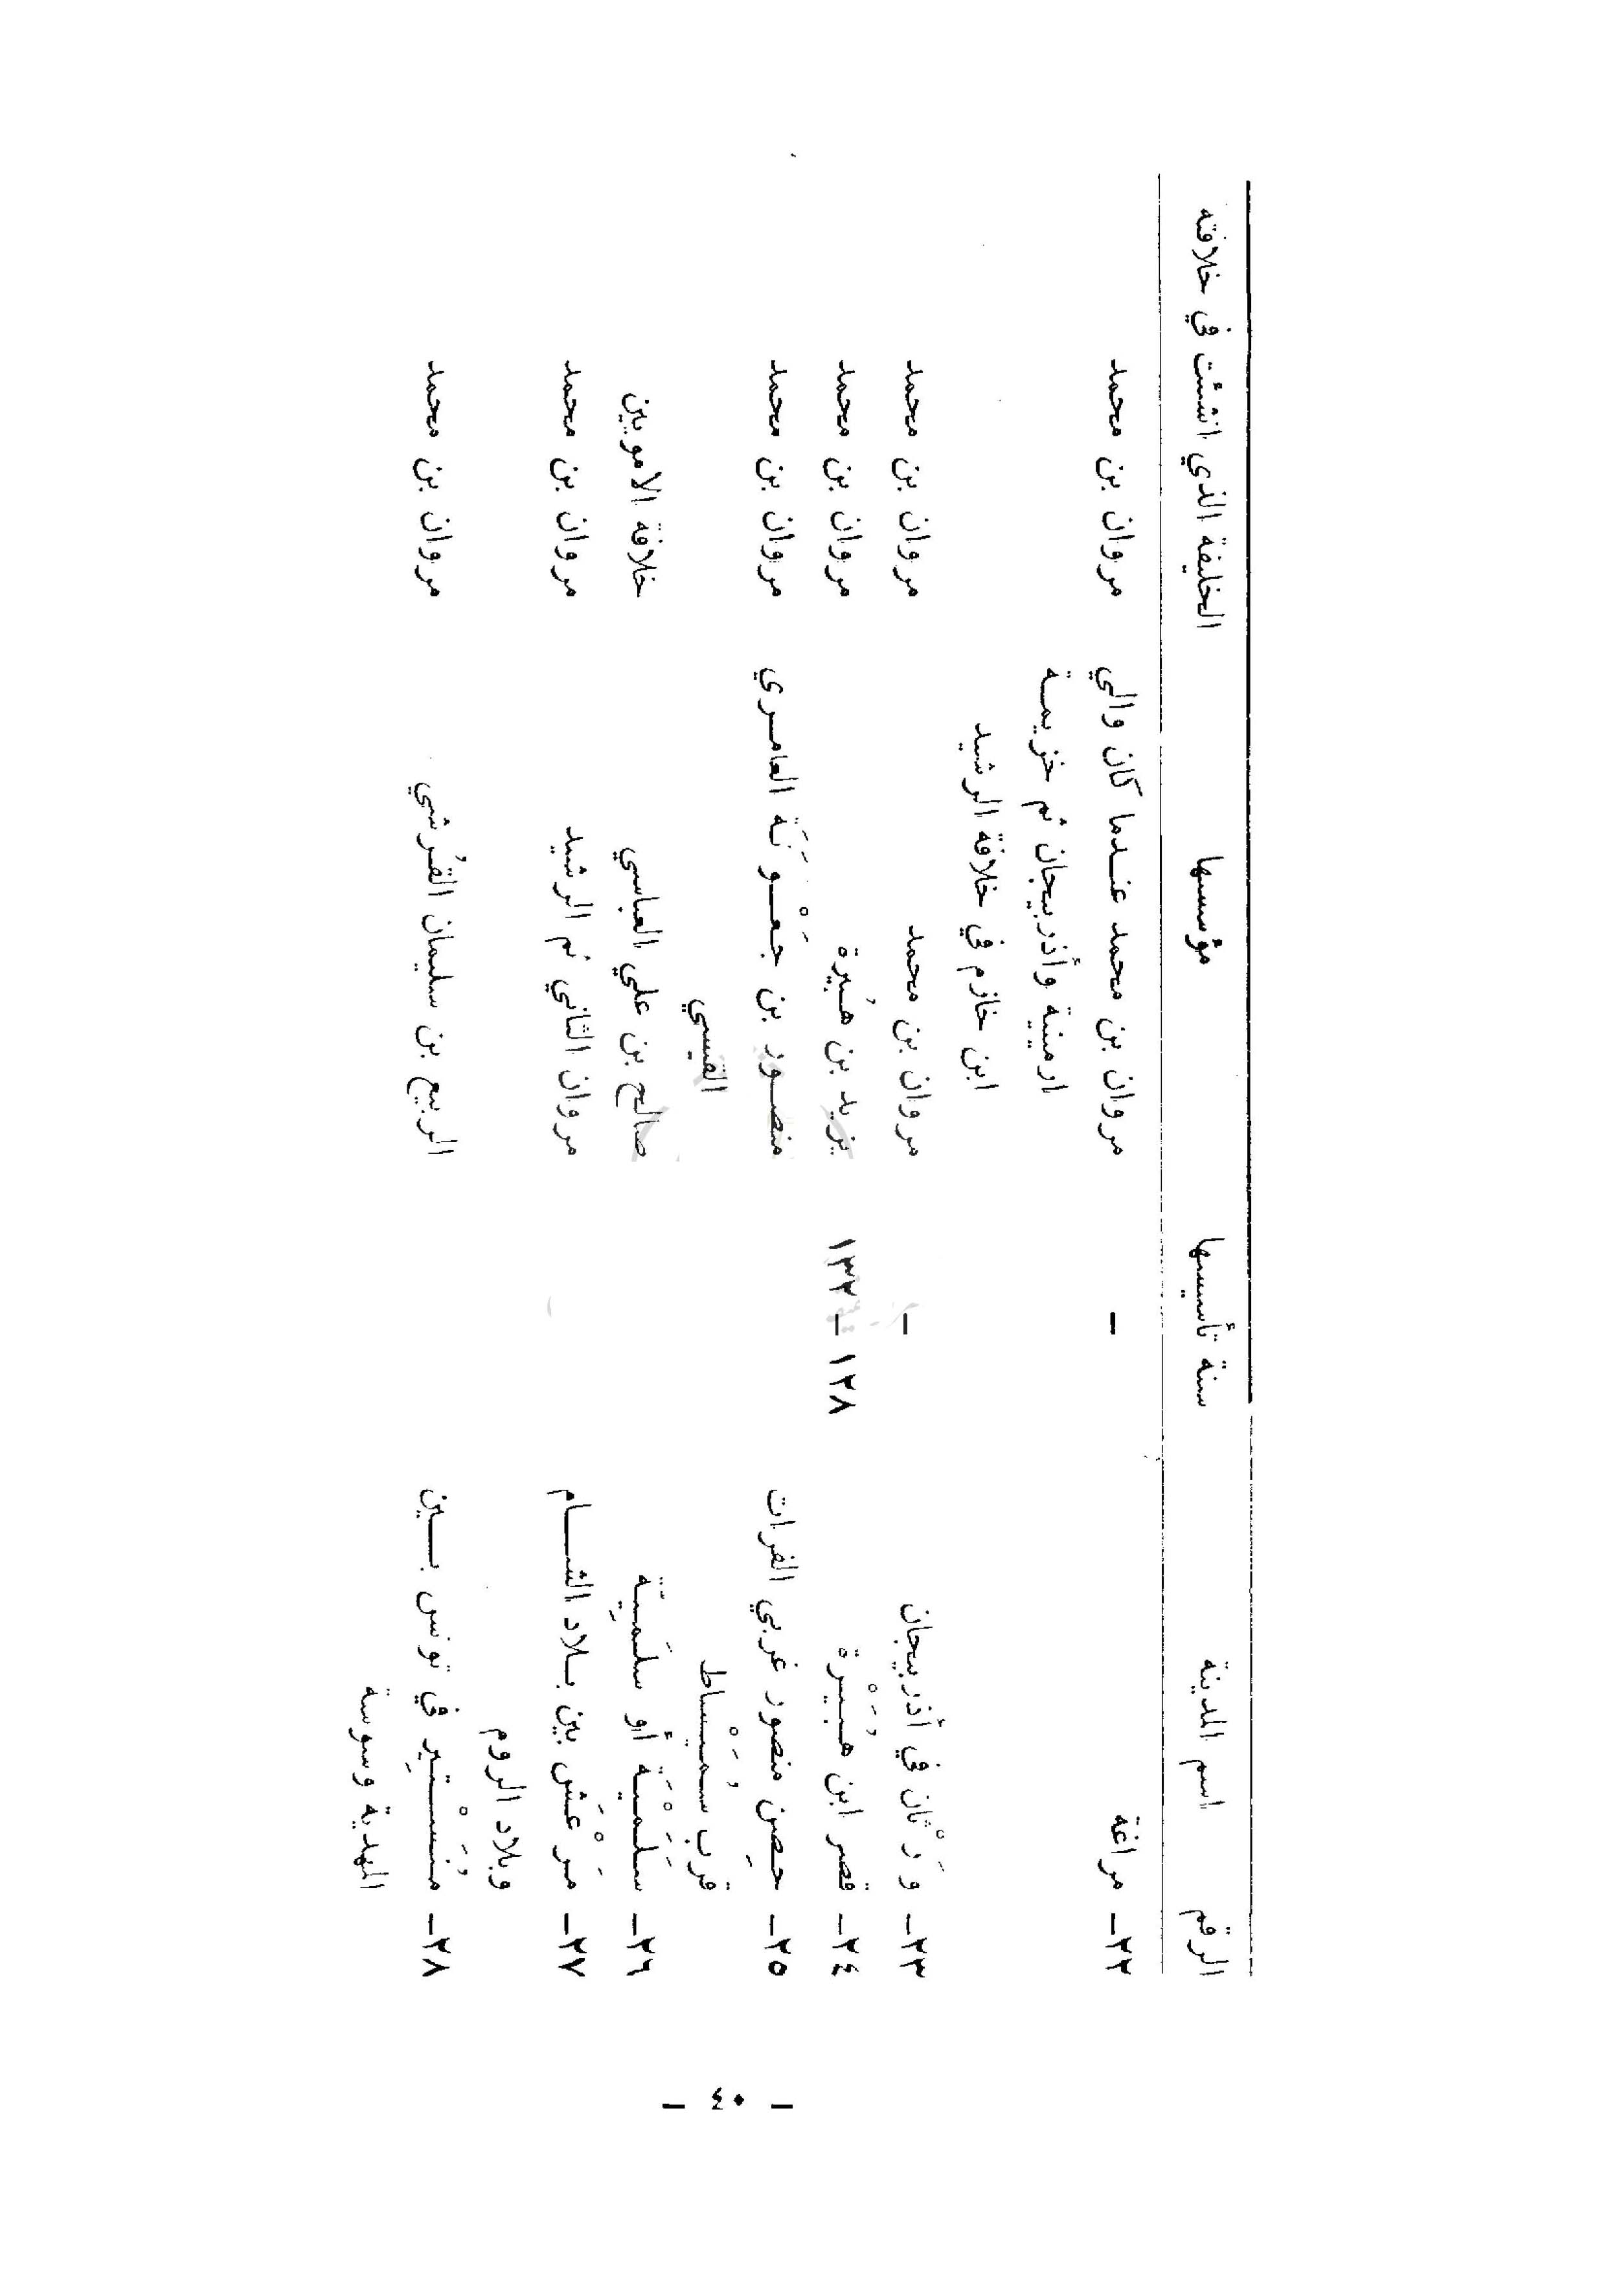 الرقم اسم المدينة سنة تأسيسها مؤسسها الخليفة الذي انشئت في خلافته
٢٢ـ مراغة – مروان بن محمد عندما كان والي مروان بن محمد
ارمينية وأذربيجان ثم خزيمة
ابن خازم في خلافة الرشيد
٢٣ـ وَرْثان في أذربيجان – مروان بن محمد مروان بن محمد
٢٤ـ قصر ابن هُبَيْرة ١٢٨ – ١٣٢ يزيد بن هُبيرة مروان بن محمد
٢٥ـ حصِن منصور غربي الفرات منصور بن جَعْوَنَة العامري مروان بن محمد
قرب سُمَيْساط القيسي
٢٦ـ سَلَمْيَة أو سلَميِّة صالح بن علي العباسي خلافة الامويين
٢٧ـ مَرْعَش بين بلاد الشام مروان الثاني ثم الرشيد مروان بن محمد
وبلاد الروم
٢٨ـ مُنَسْتِير في تونس بين الربيع بن سليمان القُرشي مروان بن محمد
المهدية وسوسة
– ٤٠ –